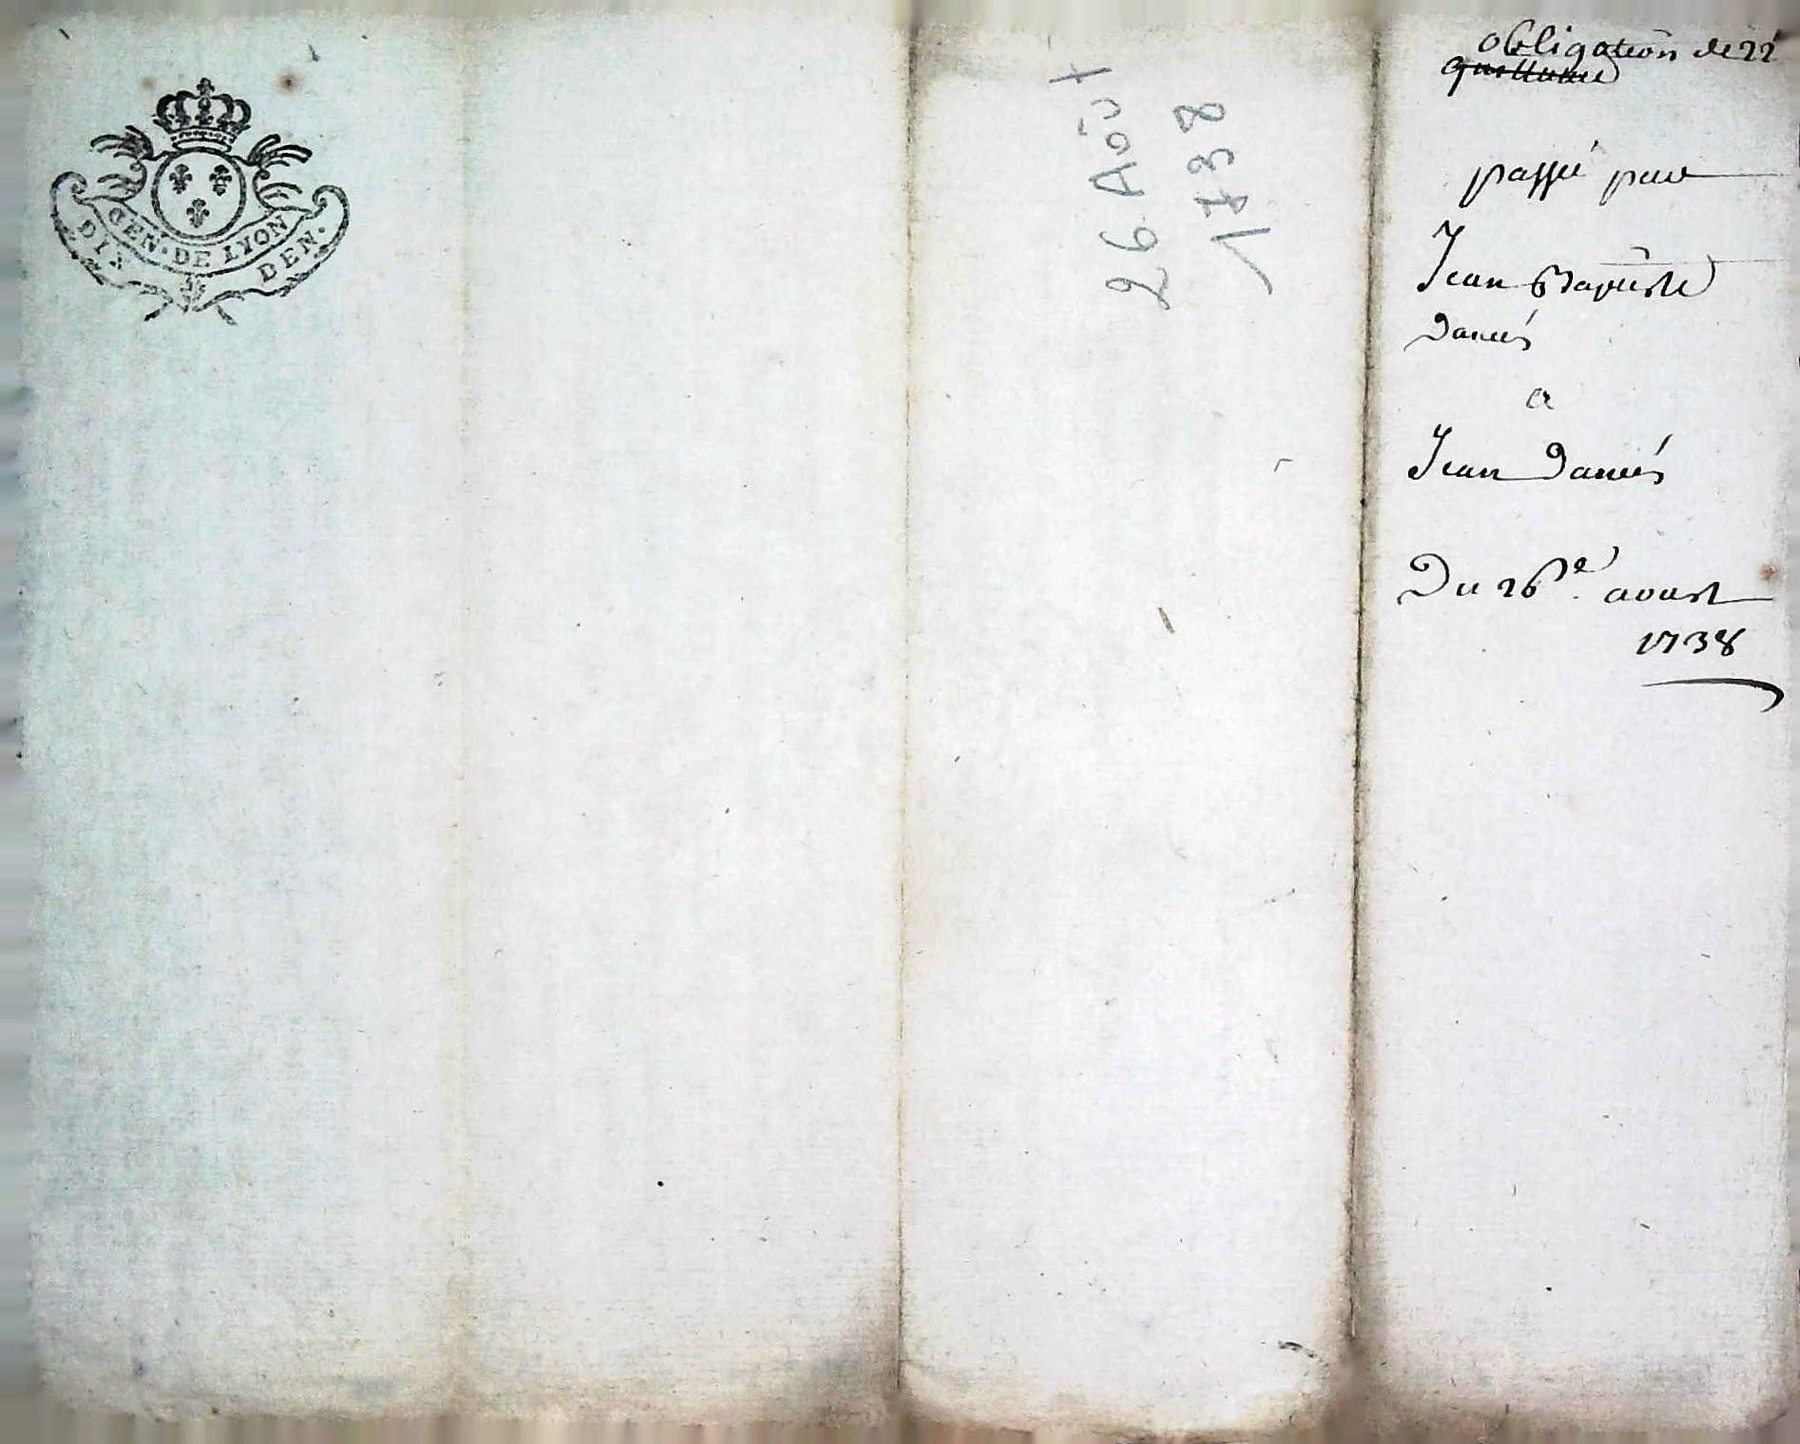 GEN. DE LYON
DIX DEN.
26 Août
1738
obligation de 22
passé par
Jean Baptiste
Danies
a
Jean Danies
Du 26e. aoust
1738